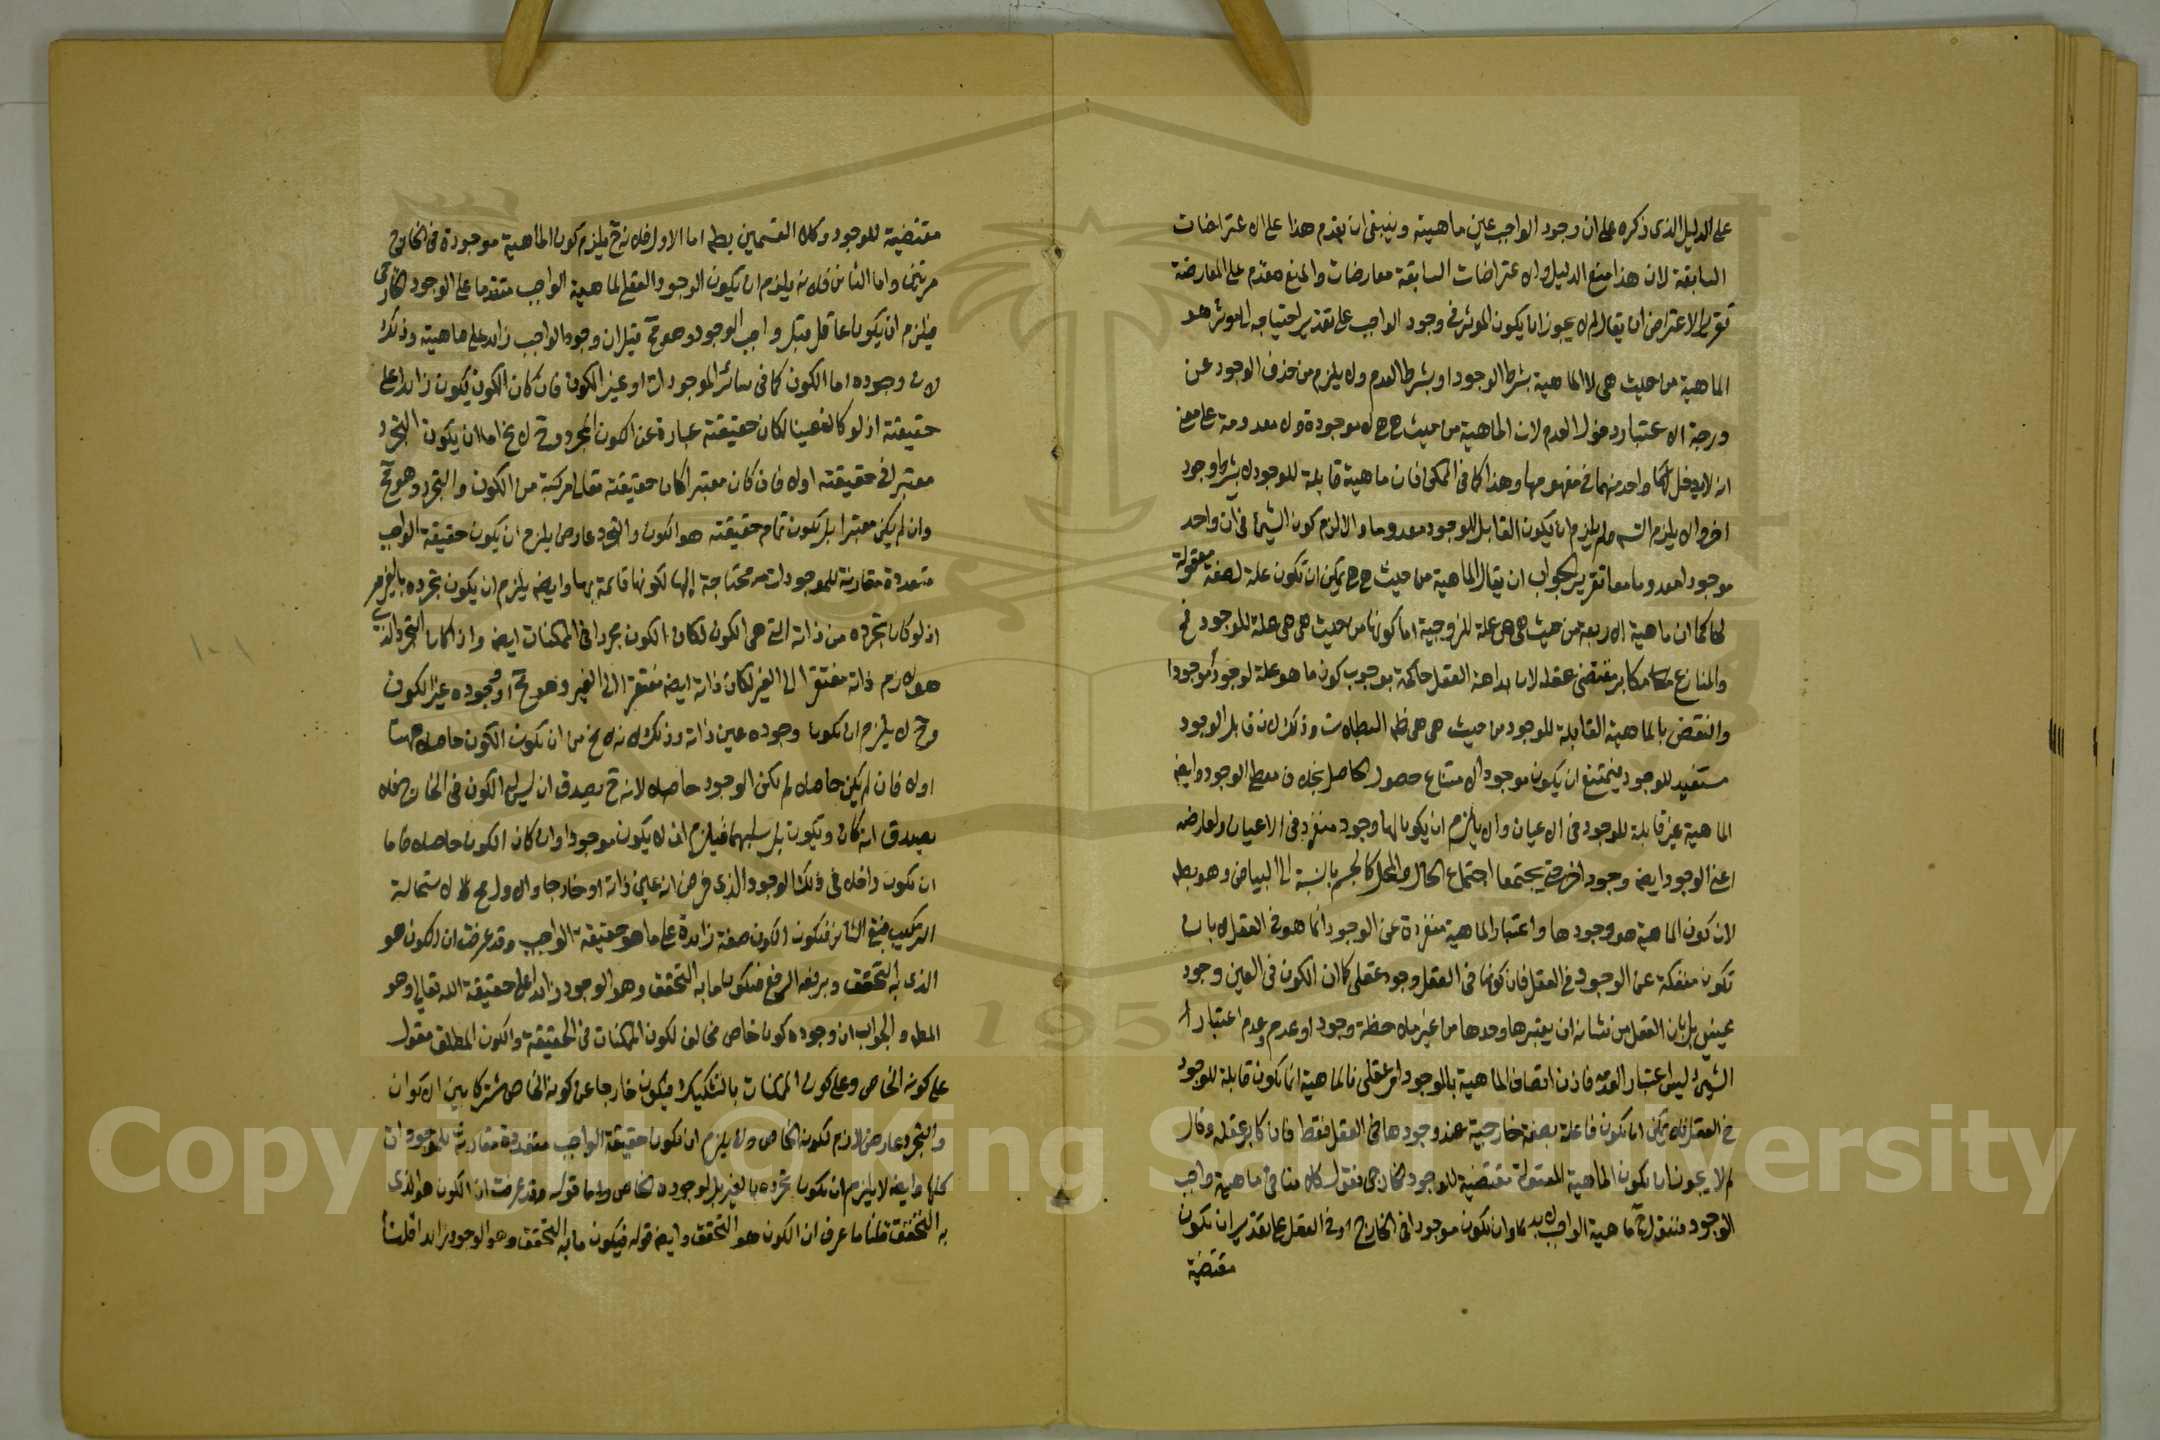 على الدليل الذى ذكره على ان وجود الواجب عين ماهيته وينبغى ان يقدم هذا على الاعتراضات
السابقة لان هذا منع الدليل والاعتراضات السابقة معارضات والمنع مقدم على المعارضة
تقرير الاعتراض ان يقال لم لا يجوز ان يكون المؤثر فى وجود الواجب على تقدير احتياجه الى مؤثر هو
الماهية من حيث هى لا الماهية بشرط الوجود او بشرط العدم ولا يلزم من حذف الوجود عن
درجة الاعتبار دخول العدم لان الماهية من حيث هى هى لا موجودة ولا معدومة على معنى
انه لا يدخل واحد منهما فى مفهومها وهذا كما فى الممكن فان ماهيته قابلة للوجود لا بشرط وجود
اخر والا يلزم التسـ ولم يلزم ان يكون القابل للوجود معدوما والا لزم كون الشئ فى ان واحد
موجودا معدوما معا تقرير الجواب ان يقال الماهية من حيث هى هى يمكن ان تكون علة لصفة معقولة
لها كما ان ماهية الاربعة من حيث هى هى علة للزوجية اما كونها من حيث هى هى علة للموجود فمـ
والمنازع مكابر مقتضى عقله لان بداهة العقل حاكمة بوجوب كون ما هو علة لوجود موجودا
والنقض بالماهية القابلة للوجود من حيث هى هى ظـ البطلان وذلك لان قابل الوجود
مستفيد للوجود فيمتنع ان يكون موجودا لامتناع حصول الحاصل بخلاف معطى الوجود وايضـ
الماهية غير قابلة للوجود فى الاعيان والا يلزم ان يكون لها وجود منفرد فى الاعيان ولعارضه
اعنى الوجود ايضـ وجود اخر حتى يجتمعا اجتماع الحال والمحل كالجسم بالنسبة الى البياض وهو بطـ
لان كون الماهية هو وجودها واعتبار الماهية منفردة عن الوجود انما هو فى العقل لا بان
تكون منفكة عن الوجود فى العقل فان كونها فى العقل وجود عقلى كما ان الكون فى العين وجود
عينى بل بان العقل من شانه ان يعتبرها وحدها من غير ملاحظة وجود او عدم وعدم اعتبار
الشئ ليس اعتبار العدمه فاذن اتصاف الماهية بالوجود امر عقلى فالماهية انما تكون قابلة للوجود
فى العقل فلا يمكن ان تكون فاعلة بصفة خارجية عند وجودها فى العقل فقط فان كابر عقله وقال
لم لا يجوز ان يكون الماهية المعقولة مقتضية للوجود الخارجى فنقول كلامنا فى ماهية واجب
الوجود فنقول ماهية الواجب لا بد وان تكون موجودا فى الخارج او فى العقل على تقدير ان تكون
مقتضية
مقتضية للوجود وكلا القسمين بطـ اما الاول فلانه ح يلزم كون الماهية موجودة فى الخارج
مرتين واما الثانى فلانه يلزم ان يكون الوجود العقلى لماهية الواجب متقدما على الوجود الخارجى
فيلزم ان يكون عاقل قبل واجب الوجود وهو مح قيل ان وجود الواجب زائد على ماهيته وذلك
لان وجوده اما الكون كما فى سائر الموجودات او غير الكون فان كان الكون يكون زائدا على
حقيقته اذ لو كان عينا لكان حقيقته عبارة عن الكون المجرد وح لا يخـ اما ان يكون التجرد
معتبرا فى حقيقته اولا فان كان معتبرا كان حقيقته تعالى مركبة من الكون والتجرد وهو مح
وان لم يكن معتبرا بل يكون تمام حقيقته هو الكون والتجرد عارض يلزم ان يكون حقيقة الواجب
متعددة مقارنة للموجودات محتاجة اليها لكونها قائمة بها وايضـ يلزم ان يكون تجرده بالغير
اذ لو كان تجرده من ذاته التى هى الكون لكان الكون مجردا فى الممكنات ايضـ واذا كان التجرد الذى
هو لازم ذاته مفتقرا الى الغير لكان ذاته ايضـ مفتقرا الى الغير وهو مح او وجوده غير الكون
وح لا يلزم ان يكون وجوده عين ذاته وذلك لانه لا يخـ من ان يكون الكون حاصلا مهنا
اولا فان لم يكن حاصلا لم يكن الوجود حاصلا لانه ح يصدق ان ليس له الكون فى الخارج فلا
يصدق انه كان ويكون بل سلبهما فيلزم ان لا يكون موجودا وان كان الكون حاصلا فاما
ان يكون داخلا فى ذلك الوجود الذى فرض انه عين ذاته او خارجا والاول مح لاستحالة
التركيب فبقى الثانى فيكون الكون صفة زائدة على ما هو حقيقة الواجب وقد عرفت ان الكون هو
الذى به التحقق وبرفعه الرفع فيكون ما به التحقق وهو الوجود زائدا على حقيقة الله تعالى وهو
المطـ والجواب ان وجوده كون خاص مخالف لكون الممكنات فى الحقيقة والكون المطلق مقول
على كونه الخاص وعلى كون الممكنات بالتشكيك فيكون خارجا عن كونه الخاص مشتركا بين الاكوان
والتجرد عارض لازم لكونه الخاص ولا يلزم ان يكون حقيقة الواجب متعددة مقارنة للموجودات
كلها وايضـ لا يلزم ان يكون تجرده بالغير بل لوجوده الخاص واما قوله وقد عرفت ان الكون هو الذى
به التحقق قلنا ما عرف ان الكون هو التحقق وايضـ قوله فيكون ما به التحقق وهو الوجود زائدا قلنا
Copyright © King Saud University
1957